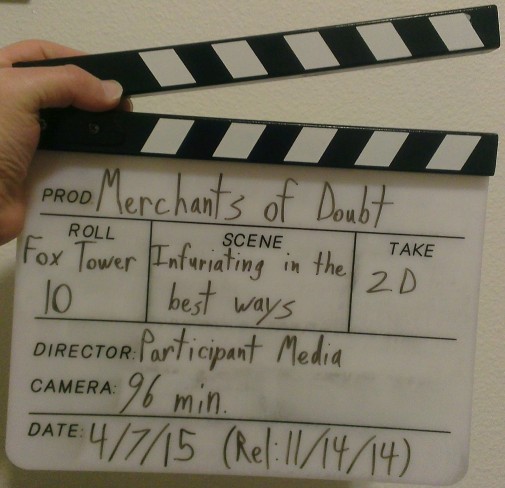 PROD. Merchants of Doubt
ROLL
Fox Tower
10
SCENE
Infuriating in the
best ways
TAKE
2D
DIRECTOR: Participant Media
CAMERA: 96 min.
DATE: 4/7/15 (Rel: 11/14/14)